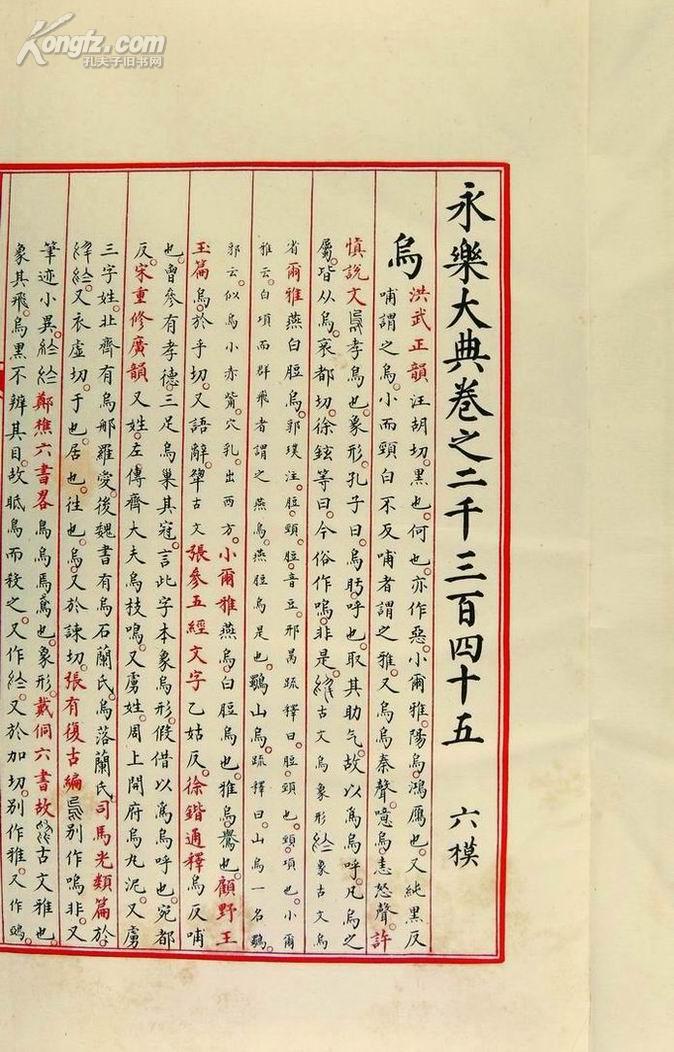 永樂大典卷之二千三百四十五 六模
烏
洪武正韻汪胡切。黑也。何也。亦作惡。小爾雅。陽烏。鴻鴈也。又純黑反
哺謂之烏。小而頸白不反哺者謂之雅。又烏烏秦聲。噫烏。恚怒聲。許
慎說文孝烏也。象形。孔子曰。烏盱。呼也。取其助气。故以爲烏呼。凡烏之
屬。皆从烏。哀都切。徐鉉等曰。今俗作嗚。非是。古文烏象形。象古文烏
省。爾雅燕白脰烏。郭璞注。脰。頸。脰。音豆。邢昺疏釋曰。脰。頸也。頸。項也。小爾
雅云。白項而群飛者謂之燕烏。燕脰烏是也。鸀山烏。疏釋曰。山烏一名鸀。
郭云。似烏小赤觜。穴乳。出西方。小爾雅燕烏。白脰烏也。雅烏。鸒也。顧野王
玉篇烏。於乎切。又語辭。古文張參五經文字乙姑反。徐鍇通釋烏反哺
也。曾參有孝德。三足烏巢其冠。言此字本象烏形。假借以爲烏呼也。宛都
反。宋重修廣韻又姓。左傳齊大夫烏枝鳴。又虜姓。周上開府烏丸泥。又虜
三字姓。北齊有烏那羅愛。後魏書有烏石蘭氏。烏落蘭氏。司馬光類篇於
又衣虛切。于也。居也。往也。烏。又於諫切。張有復古編別作嗚。非。又
筆迹小異。鄭樵六書畧烏也。象形。戴侗六書故古文雅也。
象其飛。烏黑不辨其目。故眂烏而殺之。又作於。又於加切。別作雅。又作鴉。
Kongfz.com
孔夫子旧书网